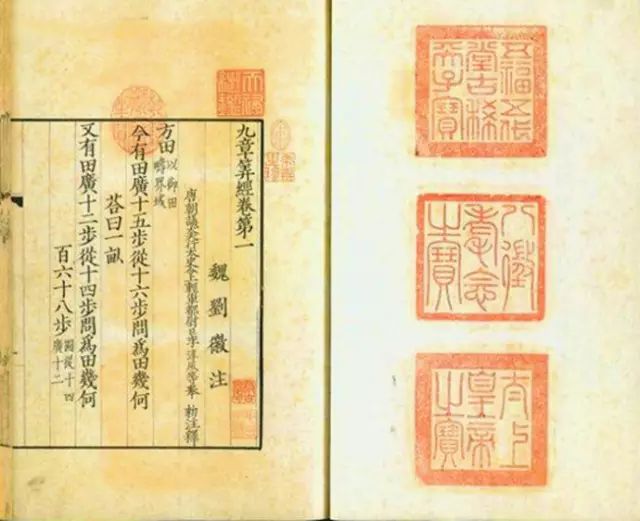 五福五代
堂古稀
天子寶
八徵
耄念
之寶
太上
皇帝
之寶
天祿
繼鑑
九章筭經卷第一
魏劉徽注
唐朝議大夫行太史令上輕車都尉臣李淳風等奉 勑注釋
方田以御田疇界域
今有田廣十五步從十六步問爲田幾何
荅曰一畝
又有田廣十二步從十四步問爲田幾何
百六十八步圖從十四廣十二